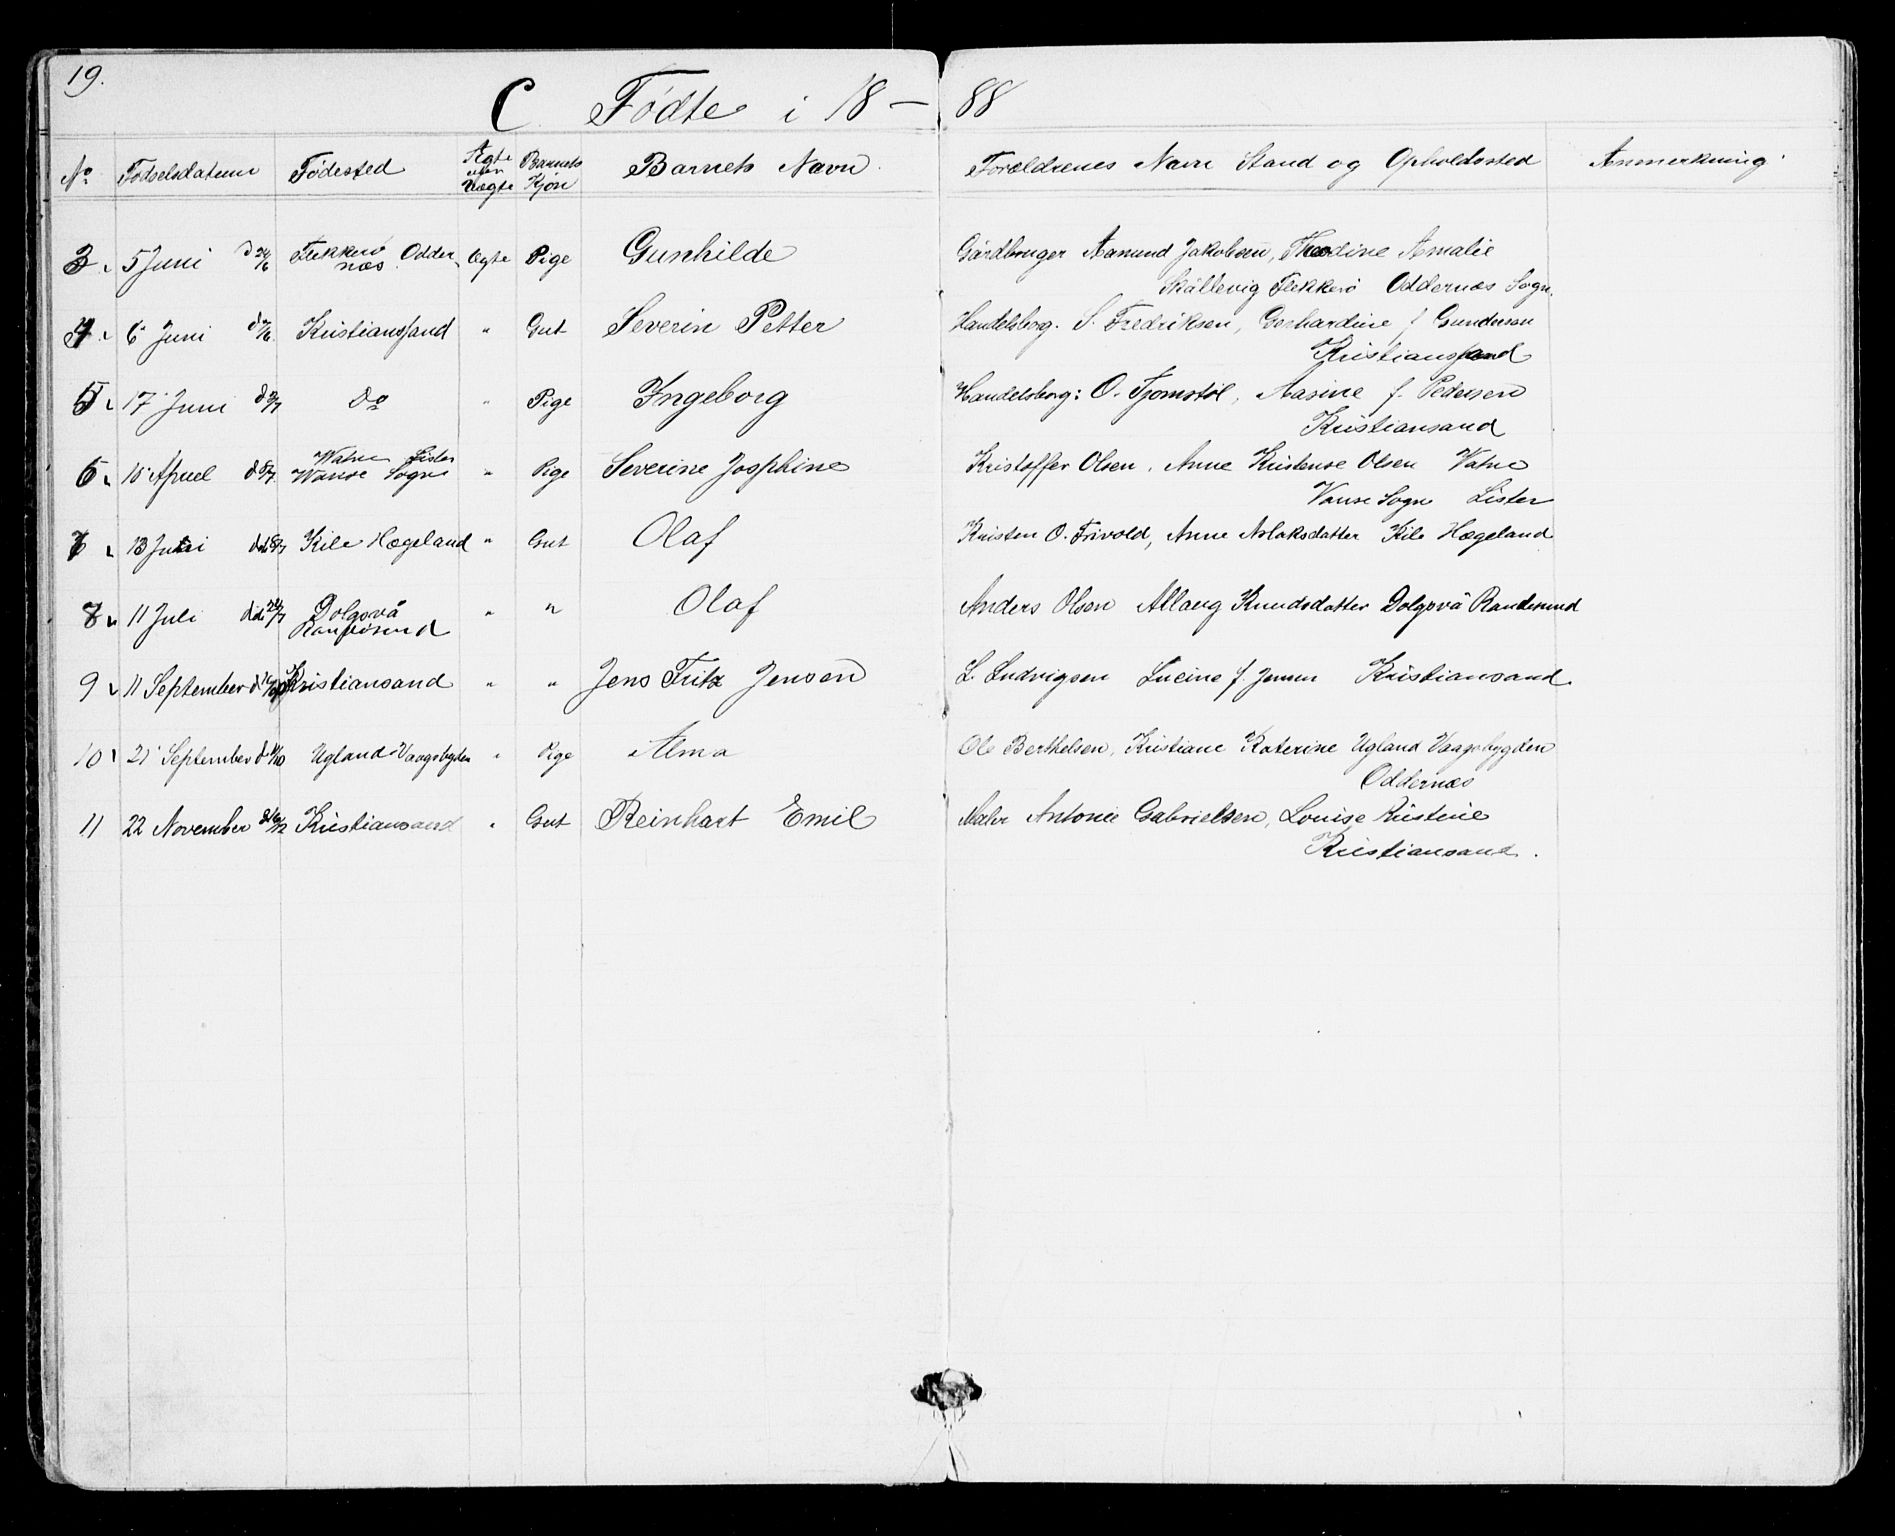 19.
C Fødte i 18 — 88
No Fødselsdatum Fødested Ægte eller Uægte Barnets Kjøn Barnets Navn Forældrenes Navn Stand og Opholdssted Anmerkning
3 5 Juni Flekkerø Odder- Ægte Pige Gunhilde Gårdbruger Aanund Jakobsen, Theodine Amalie
næs Skållevig Flekkerø Oddernæs Sogn.
4 6 Juni Kristianssand " Gut Severin Petter Handelsborg. S. Fredriksen, Gerhardine f Gundersen
Kristianssand
5 17 Juni Do " Pige Ingeborg Handelsborg: O. Tjomstøl, Aasine f. Pedersen
Kristiansand
Vatne Lister
6 10 April Wanse Sogn " Pige Severine Josphine Kristoffer Olsen, Anne Kristense Olsen Vatne
Vanse Sogn Lister
7 13 Kile Hægeland " Gut Olaf Kristen O. Frivold, Anne Aslaksdatter Kile Hægeland
8 11 Juli Dolgsvå " " Olaf Anders Olsen Allaug Knudsdatter Dolgsvå Randesund
Randøsund
9 11 September Kristiansand " " Jens Fritz Jensen L. Ludvigsen Lucine f. Jensen Kristiansand
10 21 September Ugland Vaagsbygden " Pige Alma Ole Berthelsen, Kristiane Katerine Ugland Vaagsbygden
Oddernæs
11 22 November Kristiansand " Gut Reinhart Emil Maler Antonie Gabrielsen, Louise Kristine
Kristiansand.